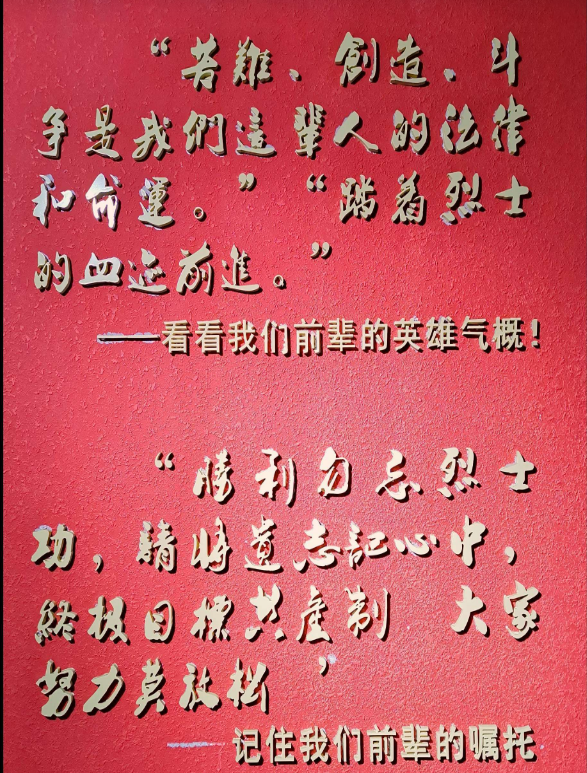 “苦難、創造、斗
争是我們這輩人的法律
和命運。”“踏着烈士
的血迹前進。”
——看看我们前辈的英雄气概！
“勝利勿忘烈士
功，請將遺志記心中，
終極目標共產制 大家
努力莫放松 ’
——记住我们前辈的嘱托